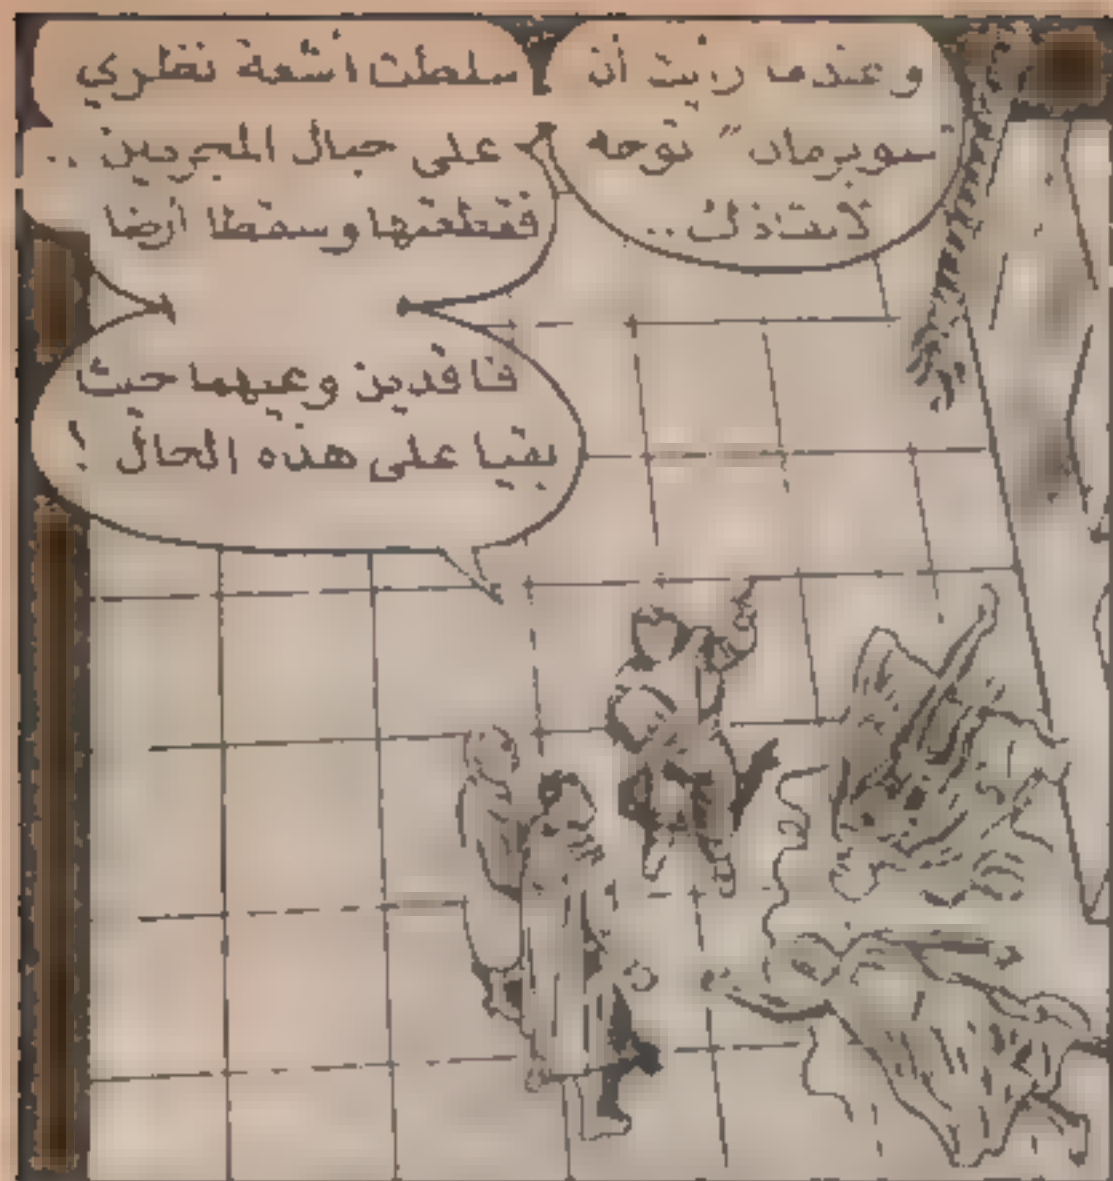 وعندما رأيت أن
سوبرمان" توجه
لانقاذك..
سلطت أشعة نظري
على حبال المجرمين ..
فقطعتها وسقطا أرضا
فاقدين وعيهما حيث
بقيا على هذه الحال !